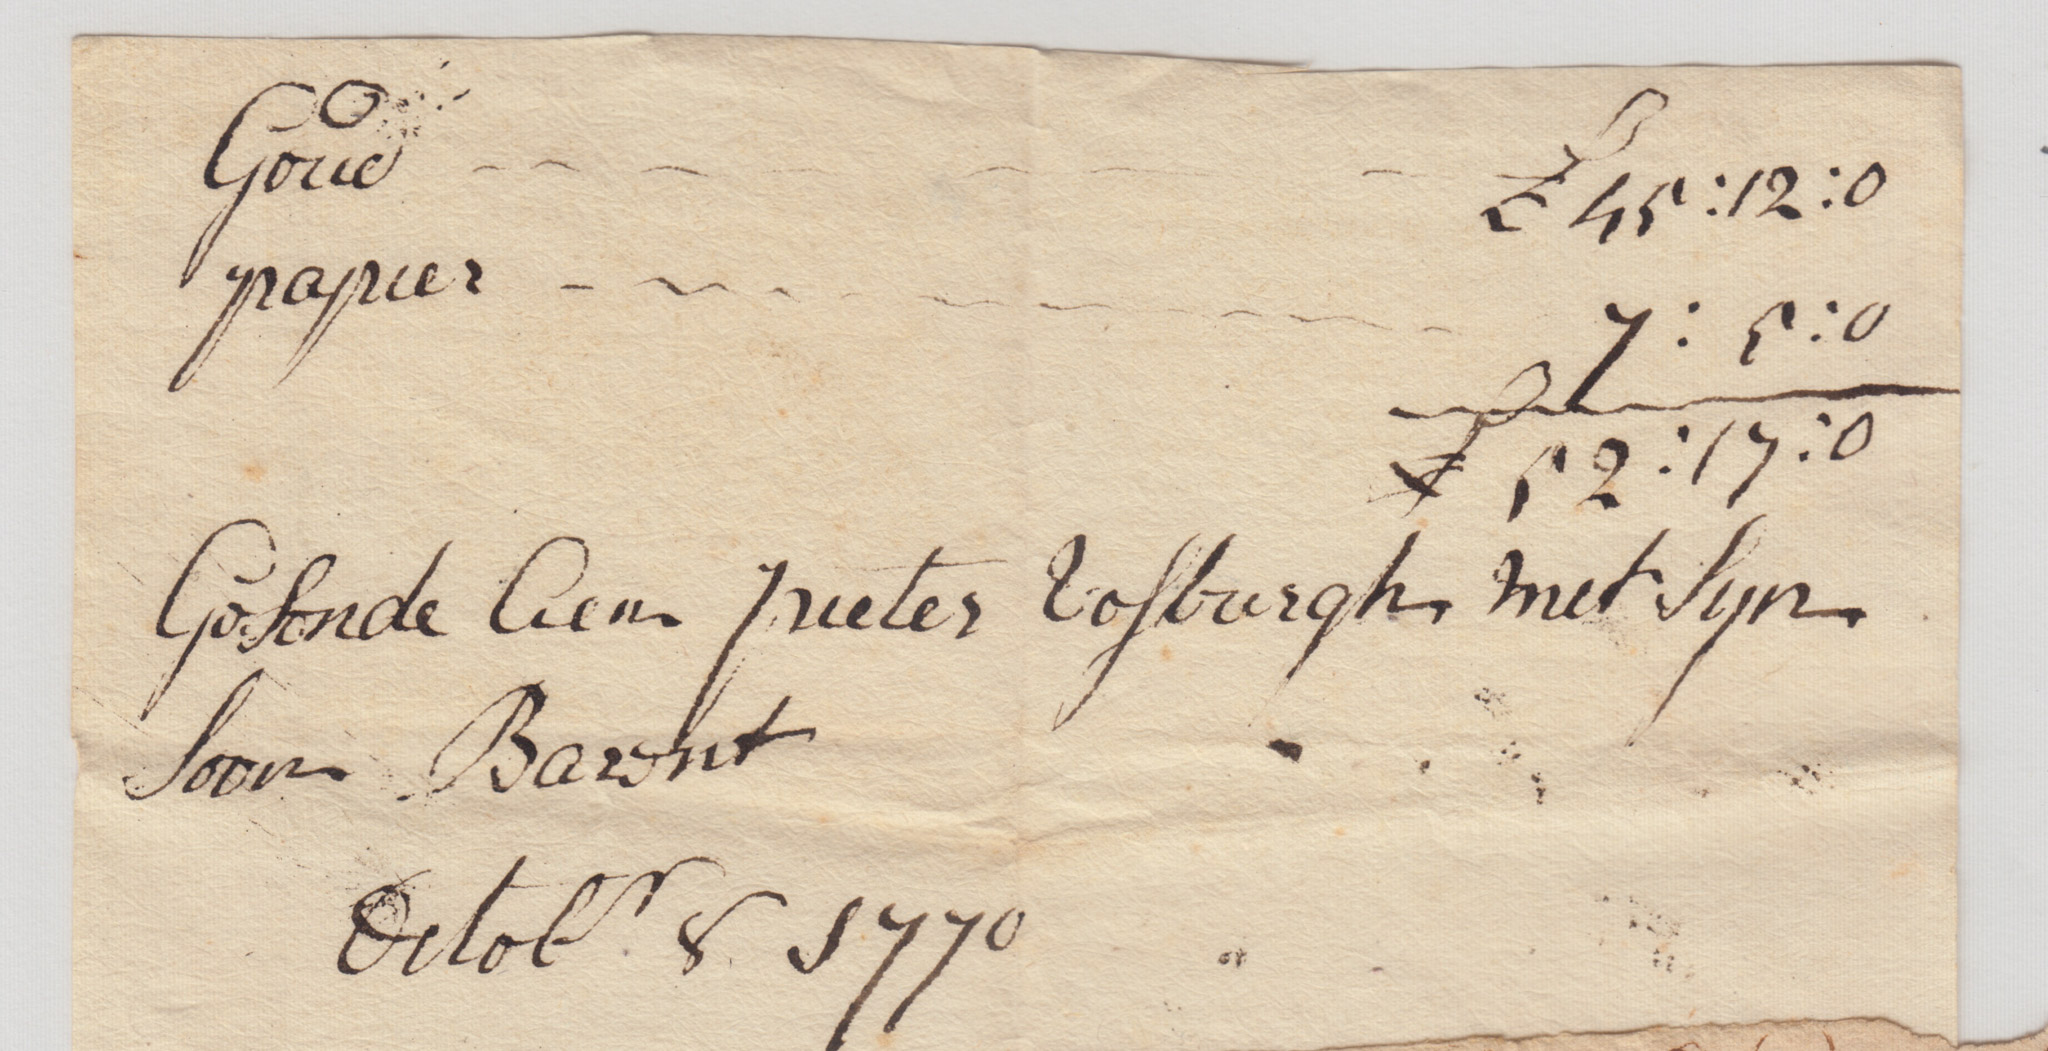 Goud £ 45:12:0
papier 7: 5:0
£ 52:17:0
Gesonde Aen pieter Vosburgh met Syn
Soon Barent
Octobr. 8 1770